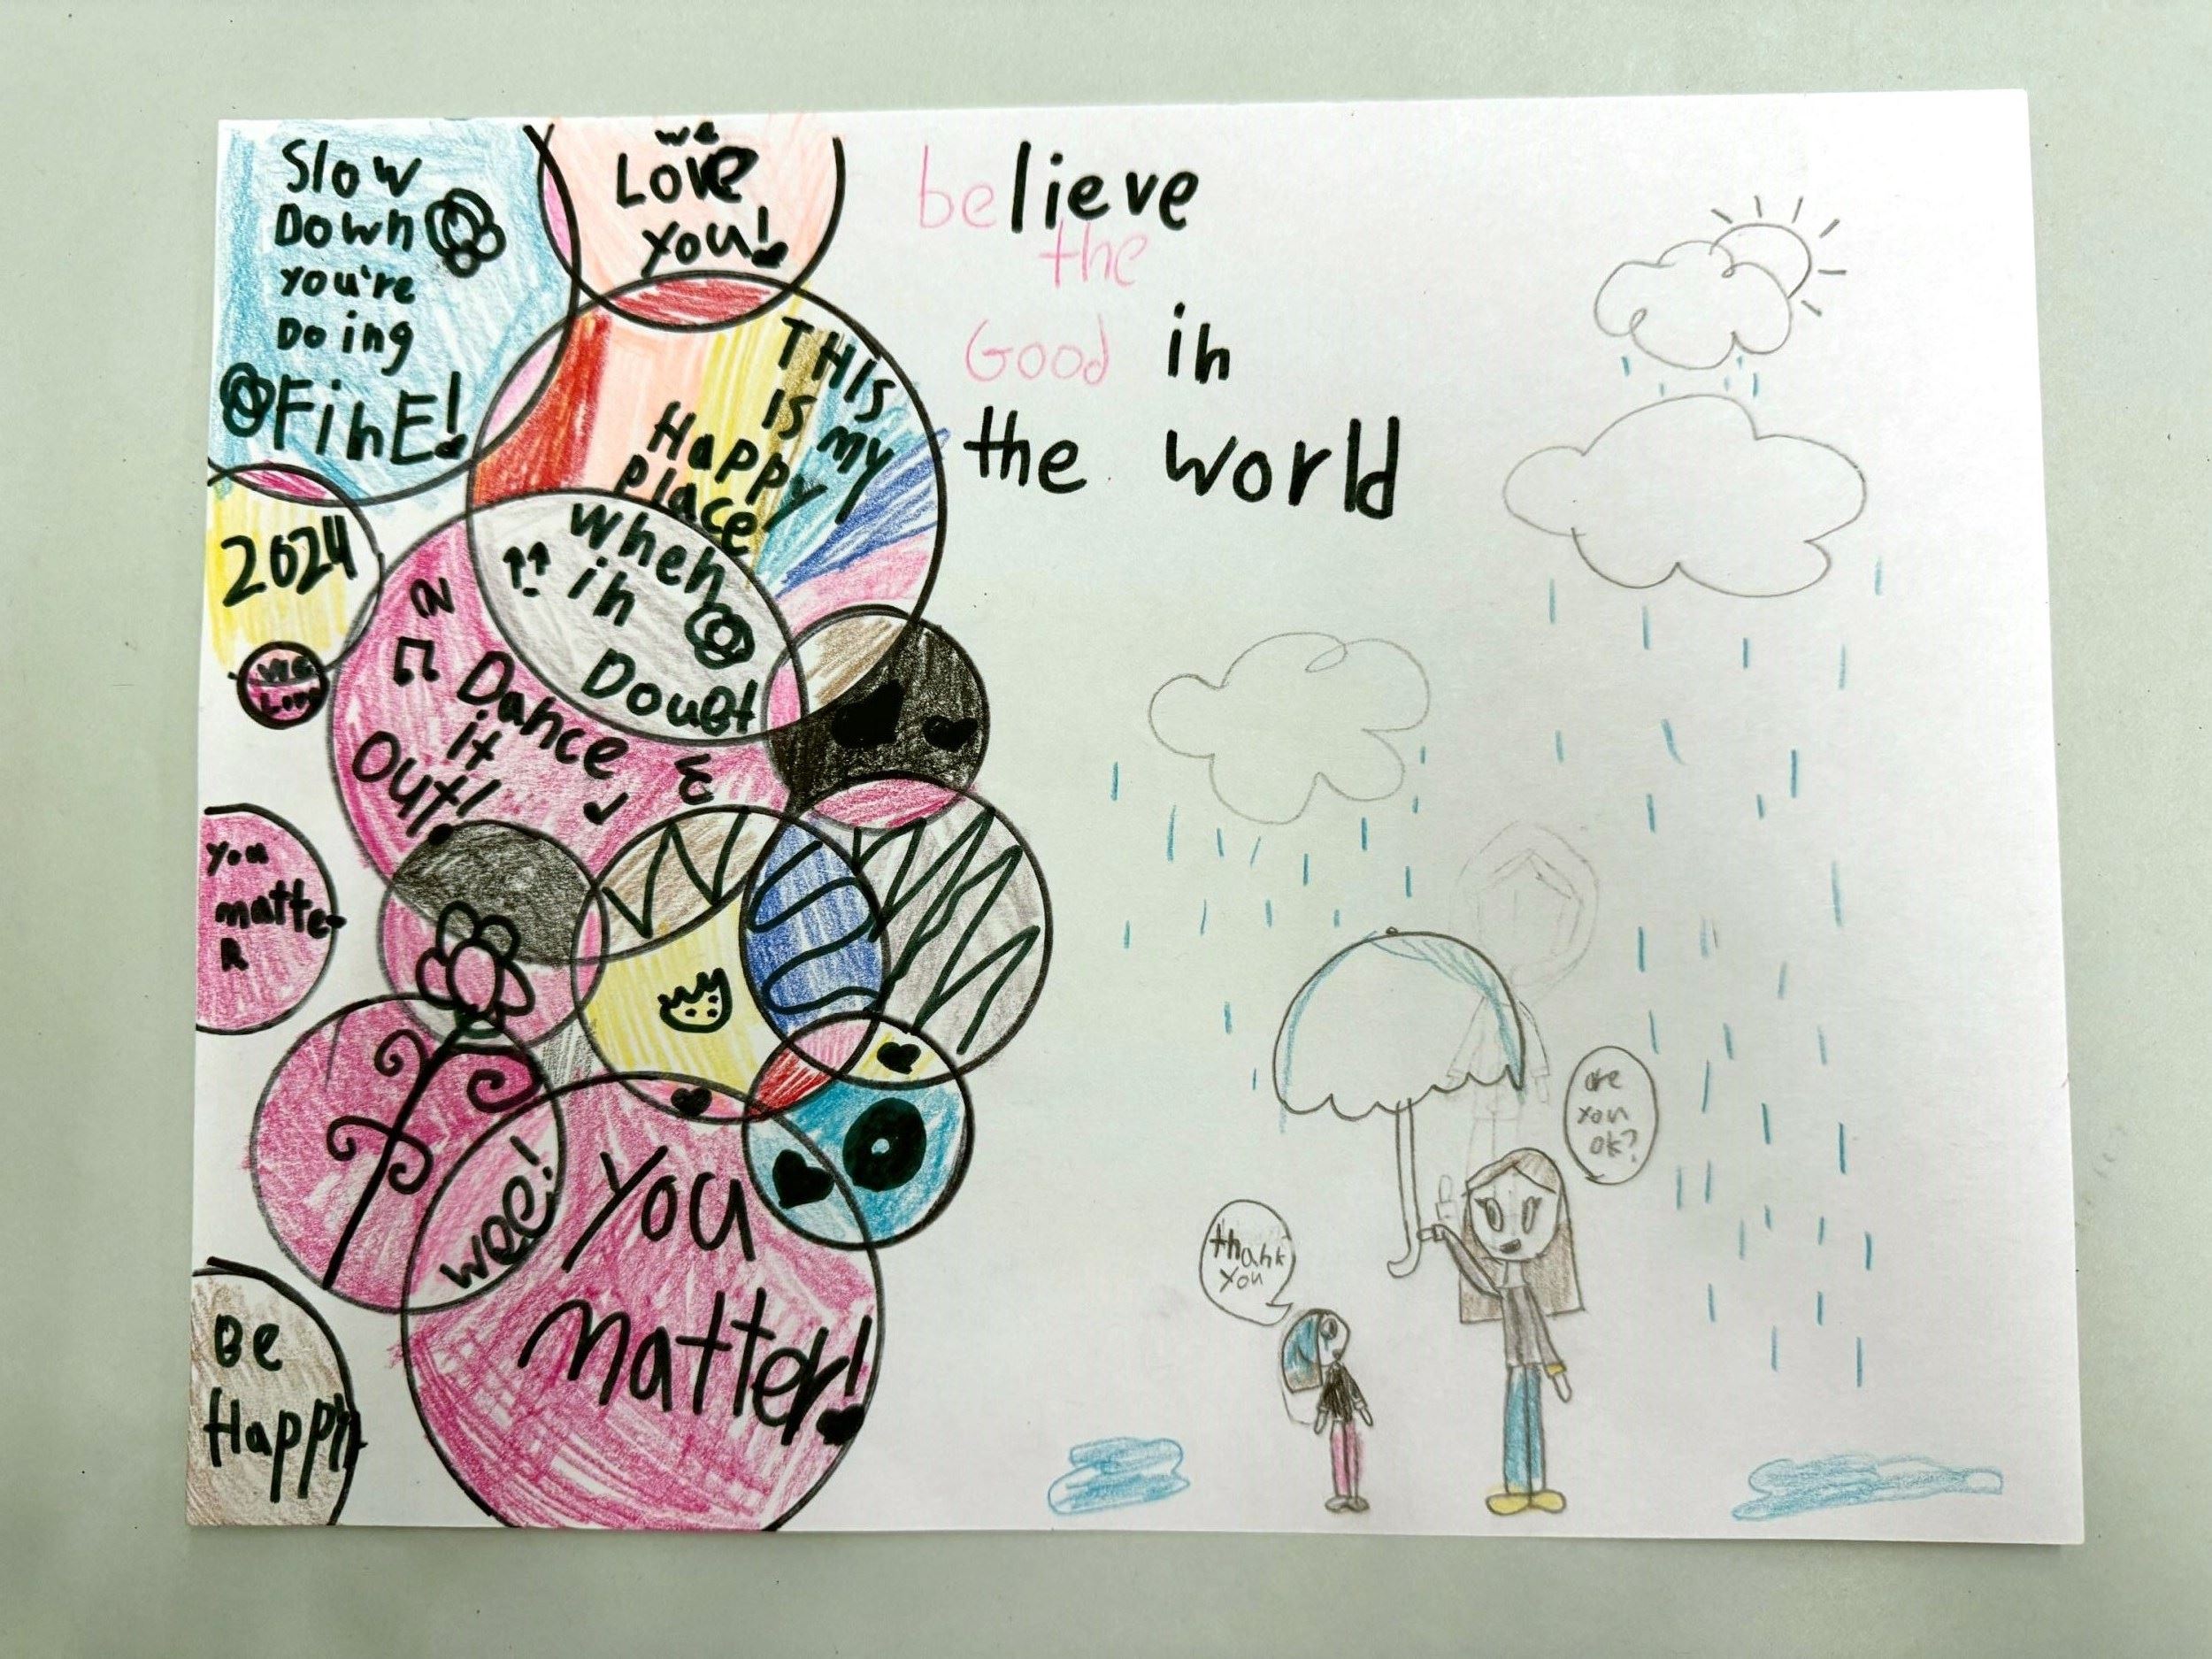 Slow
Down
You're
Doing
FinE!
we
Love
You!
believe
the
Good in
the world
THis
is my
Happy
Place
When
in
Doubt
Dance
it
Out!
2024
We
Love
You
matte-
R
wee!
You
Matter!
Be
Happy
are
you
ok?
thank
You